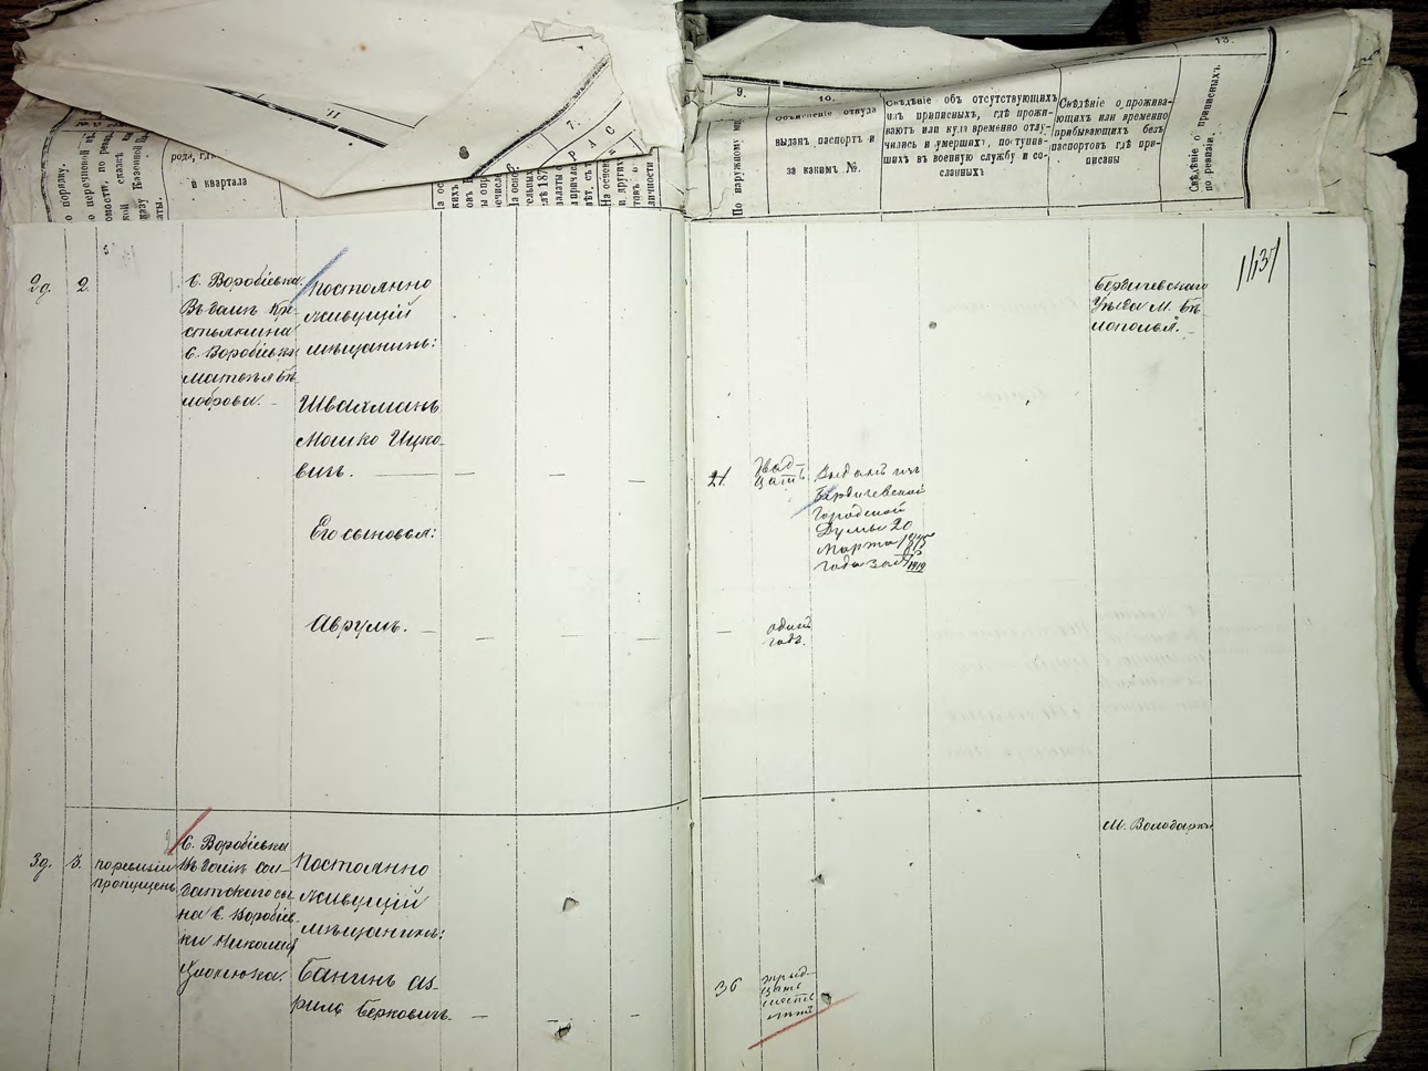 9.
10.
13.
По наружному
Объясненіе откуда
выданъ паспортъ и
за какимъ №.
Свѣдѣніе объ отсутствующихъ
изъ приписныхъ, гдѣ прожи-
ваютъ или куда временно отлу-
чились и умершихъ, поступив-
шихъ въ военную службу и со-
сланныхъ
Свѣдѣніе о прожива-
ющихъ или временно
прибывающихъ безъ
паспортовъ гдѣ при-
писаны
Свѣдѣніе о приписныхъ
по ревизіи.
11.
7.
6
по порядку.
и квартала
29.
2.
С. Воробіевка.
Въ домѣ Кре-
стьянина
С. Воробіевки
Матвѣя Бѣ-
лоброва.
Постоянно
живущій
мѣщанинъ:
Швахманъ
Мошко Ицко-
вичъ.
Его сыновья:
Аврумъ.
21.
двад-
цать
Выданъ изъ
Бердичевской
Городской
Думы 20
Марта 1875
года за № 1912
один
годъ.
Бердичевскаго
Уѣзда М. Бѣ-
лополья.
39.
3.
по ревизіи
пропущенъ
С. Воробіевка
Въ домѣ Сол-
датскаго сы-
на С. Воробіев-
ки Николая
Постоянно
живущій
мѣщанинъ:
Банинъ Аз-
рилъ Берковичъ.
36
трид-
цать
шесть
лѣтъ
М. Володарки